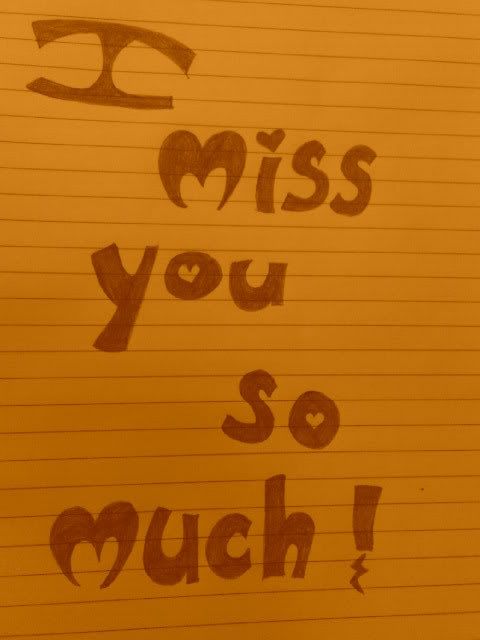 I
Miss
you
so
Much!